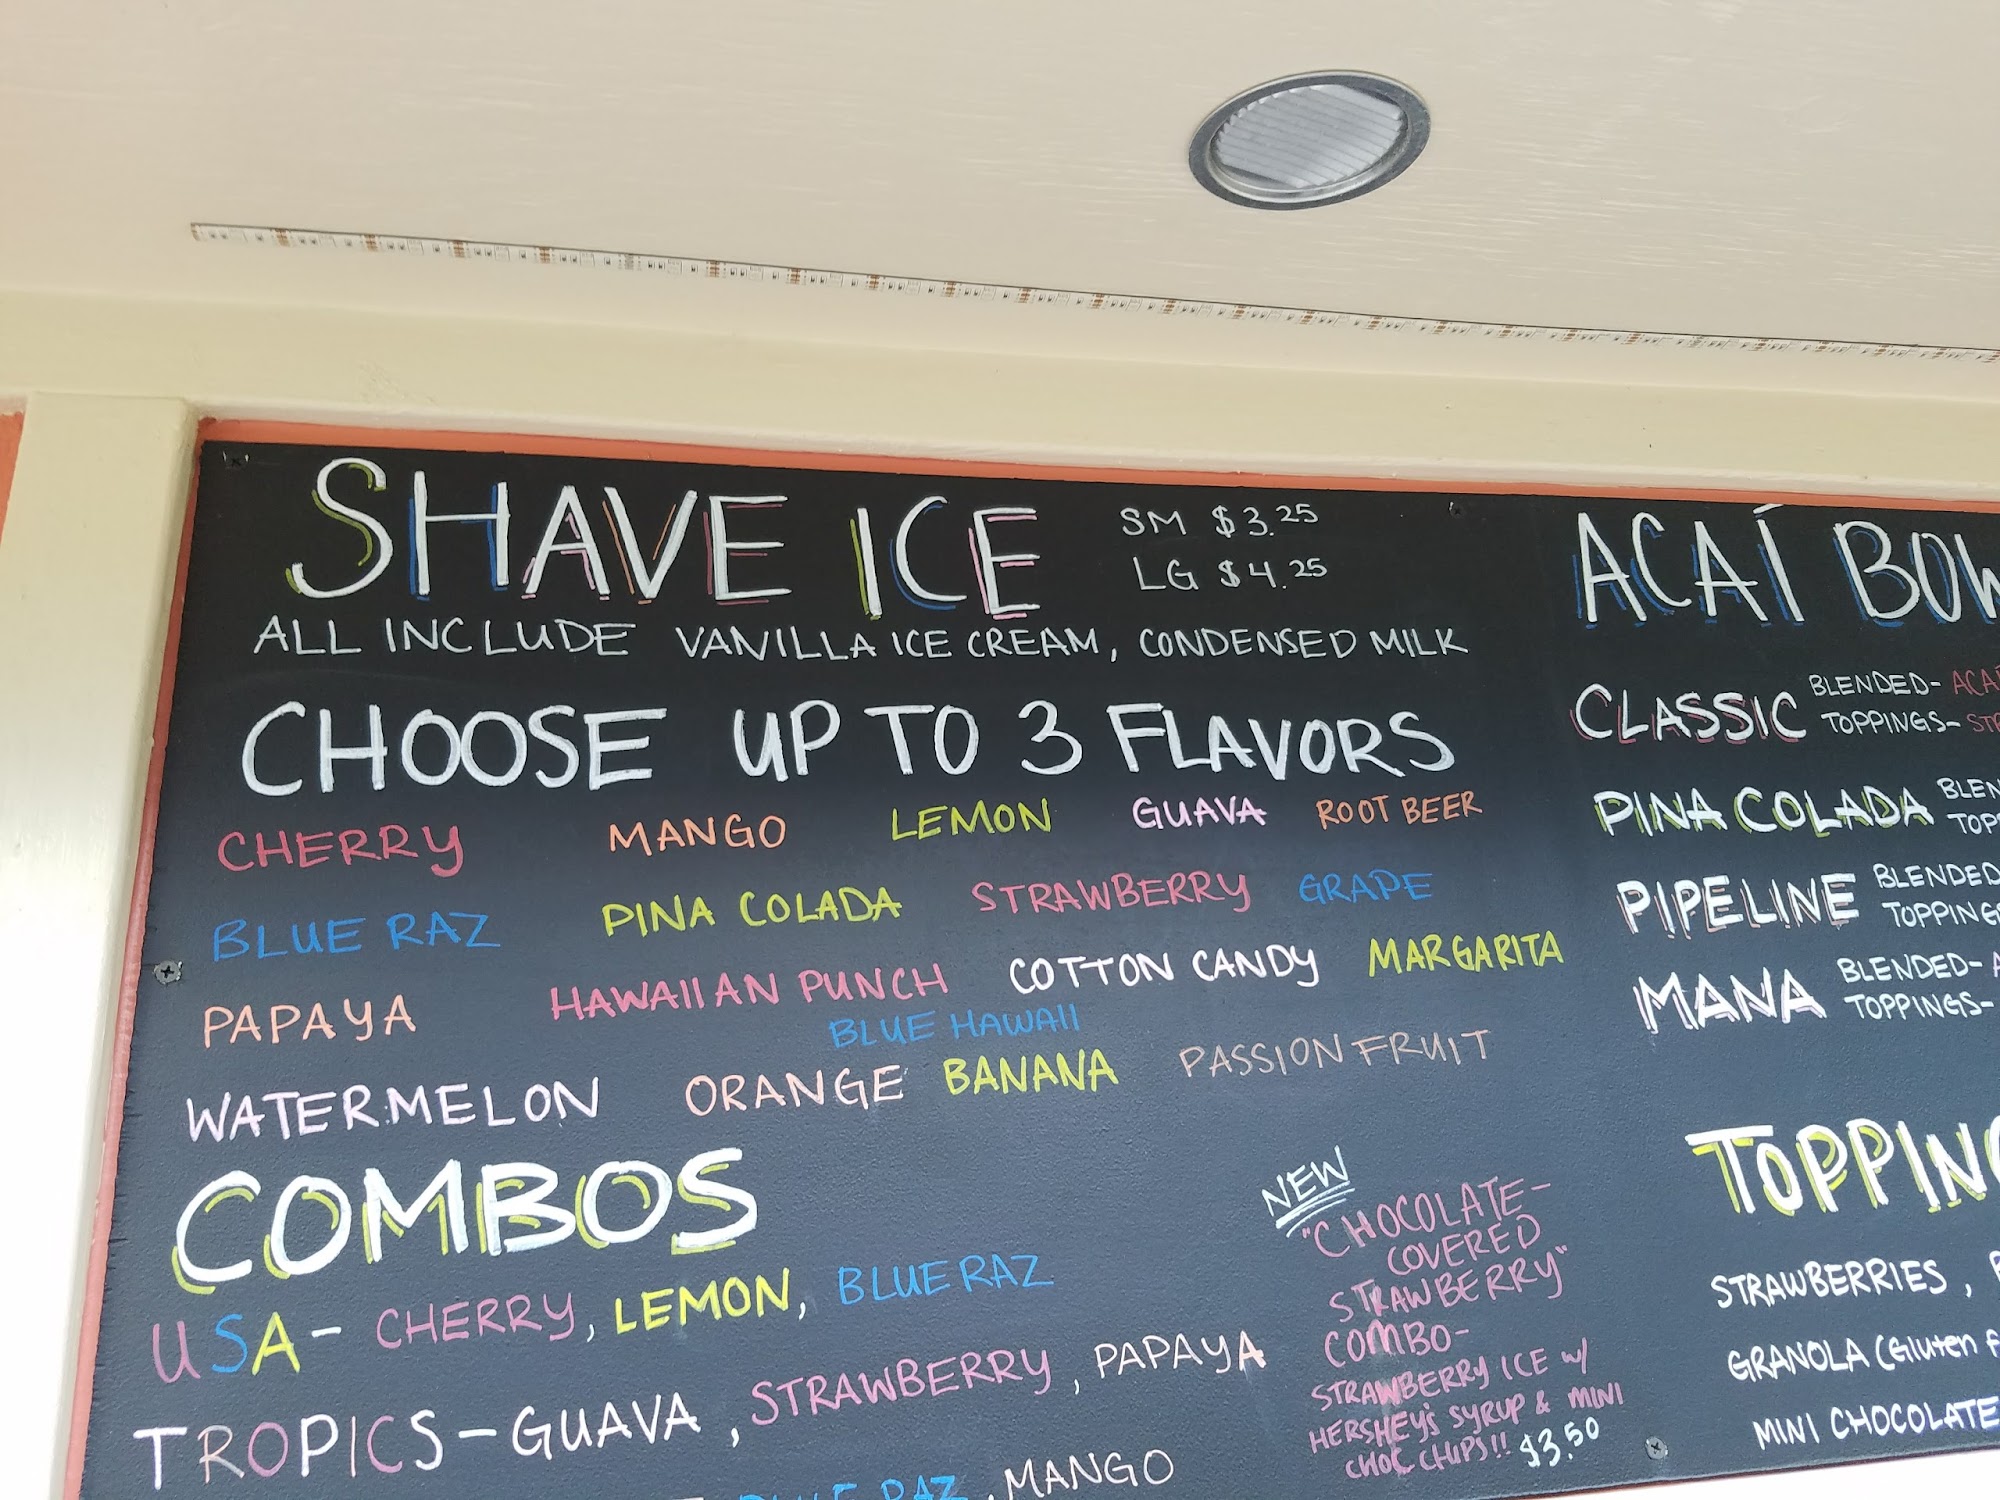 SHAVE ICE
SM $3.25
LG $4.25
ALL INCLUDE VANILLA ICE CREAM, CONDENSED MILK
CHOOSE UP TO 3 FLAVORS
CHERRY MANGO LEMON GUAVA ROOT BEER
BLUE RAZ PINA COLADA STRAWBERRY GRAPE
PAPAYA HAWAIIAN PUNCH COTTON CANDY MARGARITA
BLUE HAWAII
WATERMELON ORANGE BANANA PASSION FRUIT
COMBOS
USA- CHERRY, LEMON, BLUE RAZ
TROPICS- GUAVA, STRAWBERRY, PAPAYA
BLUE RAZ, MANGO
NEW
"CHOCOLATE-
COVERED
STRAWBERRY"
COMBO-
STRAWBERRY ICE w/
HERSHEY'S SYRUP & MINI
CHOC CHIPS!! $3.50
ACAÍ BOW
CLASSIC BLENDED- ACAÍ
TOPPINGS- ST
PINA COLADA BLEN
TOP
PIPELINE BLENDED
TOPPINGS
MANA BLENDED- A
TOPPINGS-
TOPPING
STRAWBERRIES,
GRANOLA (Gluten F
MINI CHOCOLATE